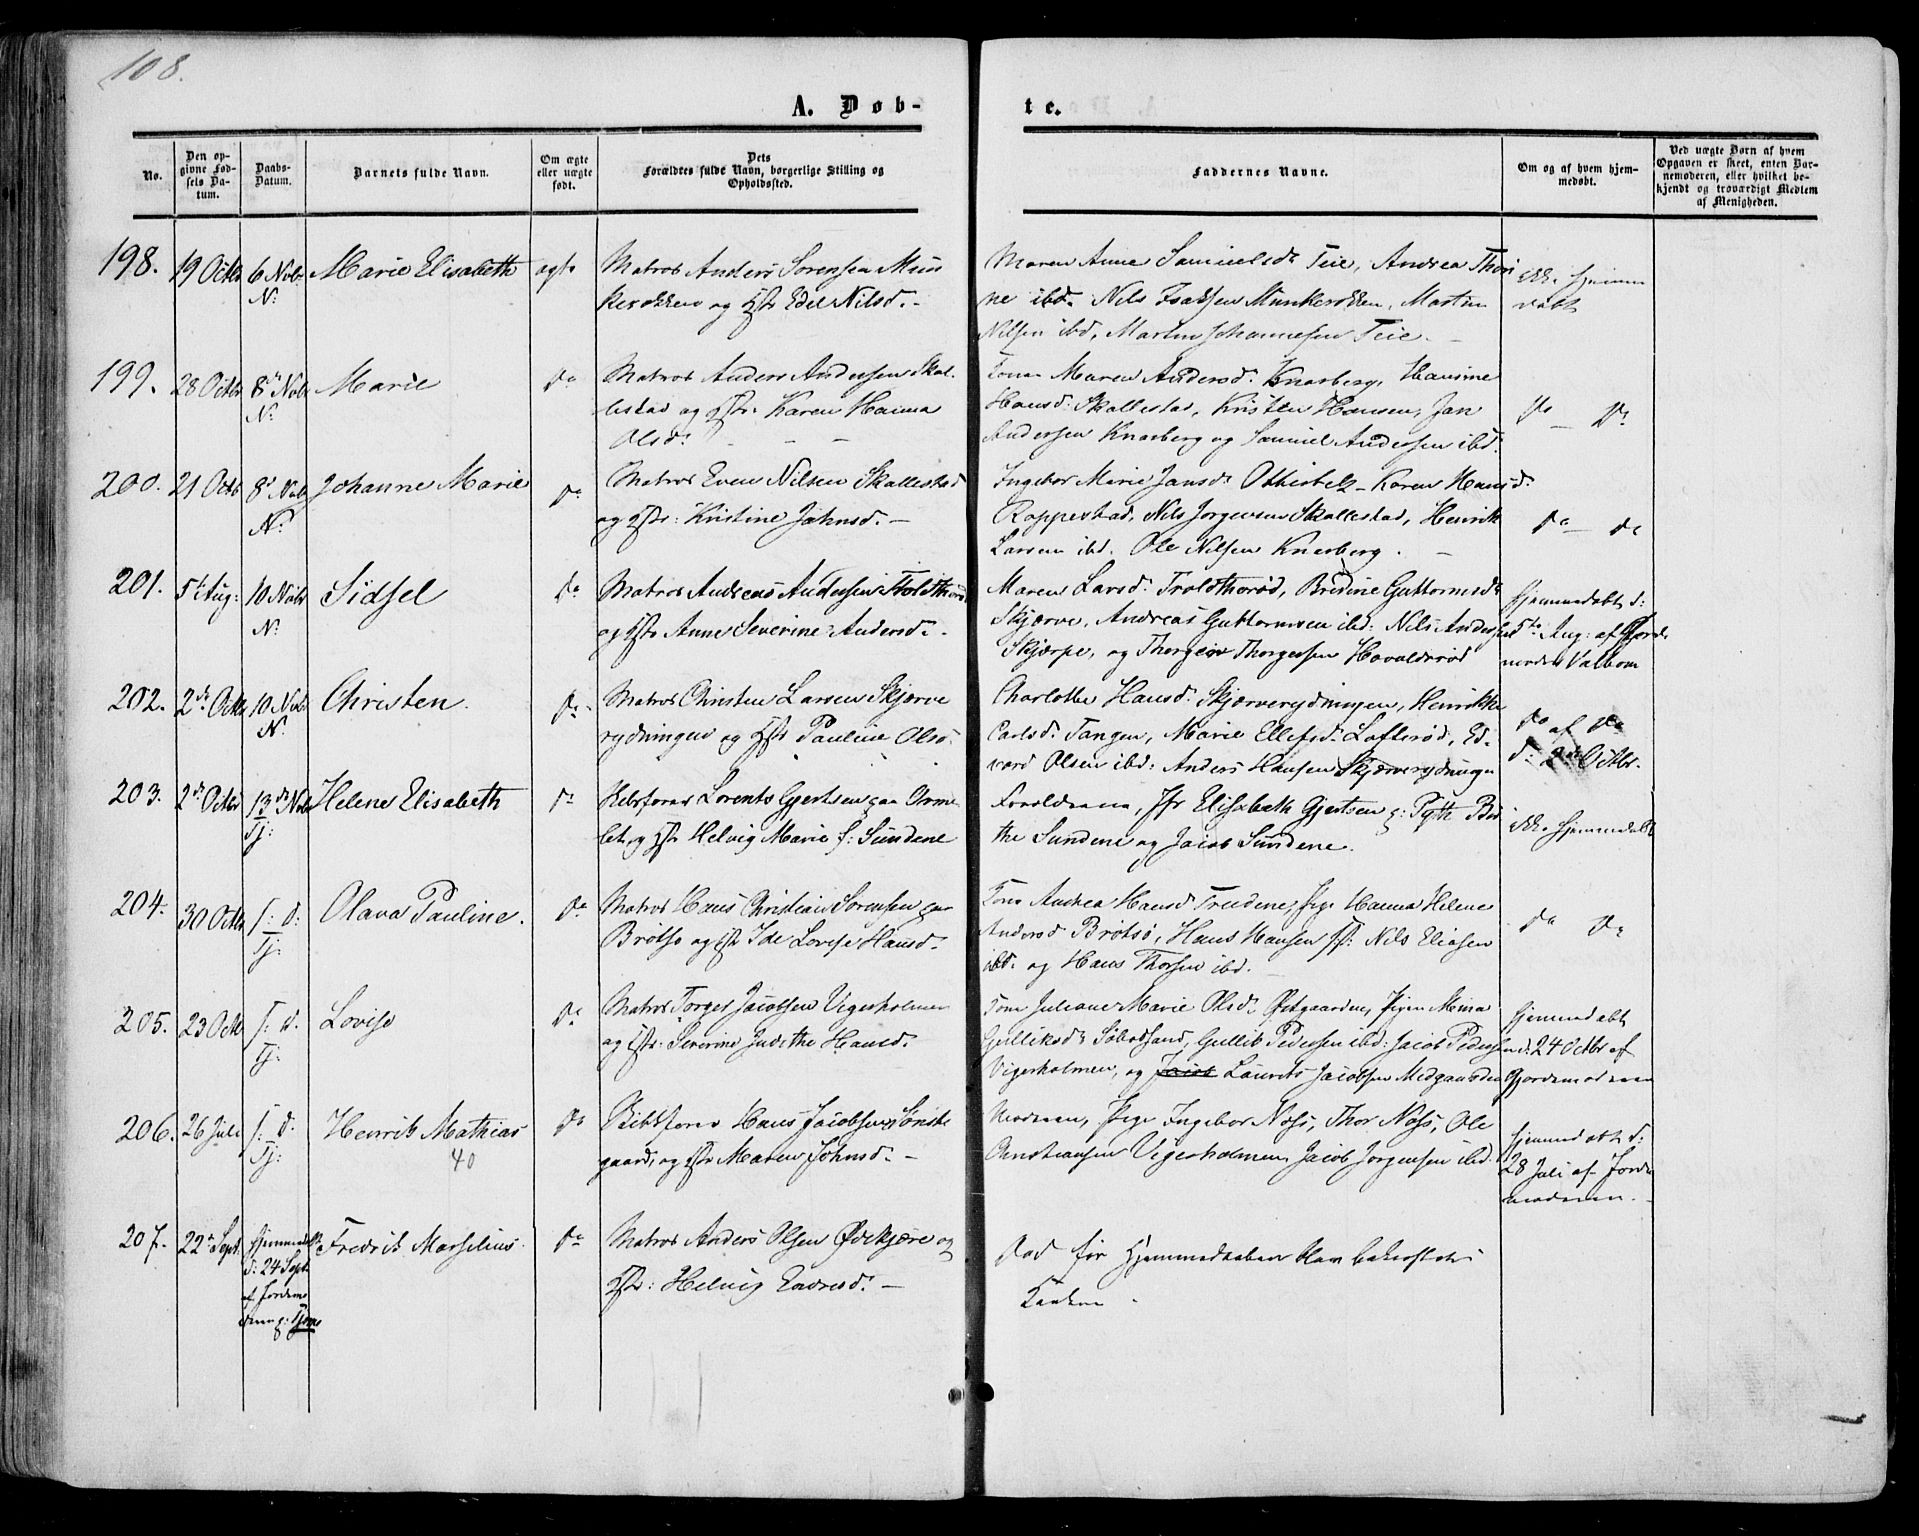 108.
A. Døb-
te.
No.
Den op-
givne Fød-
sels Da-
tum.
Daabs-
Datum.
Barnets fulde Navn.
Om ægte
eller uægte
født.
Dets
Forældres fulde Navn, borgerlige Stilling og
Opholdssted.
Faddernes Navne.
Om og af hvem hjem-
medøbt.
Ved uægte Børn af hvem
Opgaven er skeet, enten Bar-
nemoderen, eller hvilket be-
kjendt og troværdigt Medlem
af Menigheden.
198.
19 Octbr
6 Nvbr
N:
Marie Elisabeth
ægte
Matros Anders Sørensen Mun
kerokken og Hstr Edel Nilsd. -
Maren Anne Samuelsd: Teie, Andrea Thori
ne ibd. Nils Isaksen Munkerokken, Martin
Nilsen ibd, Martin Johannesen Teie. -
ikke hjemme
døbt
199.
28 Octbr
8de Nvbr
N:
Marie
do
Matros Anders Andersen Skal-
lestad og Hstr: Karen Maria
Olsd: - - -
Maren Andersd: Knarberg, Hansine
Hansd: Skallestad, Kristen Hansen, Jan
Andersen Knarberg og Samuel Andersen ibd:
do - do
200.
21 Octb
8d Nvbr
N:
Johanne Marie
do
Matros Even Nilsen Skallestad
og Hstr: Kristine Johnsd. -
Ingebor Marie Jansd: - Karen Hansd.
Roppestad, Nils Jørgensen Skallestad, Henrik
Larsen ibd. Ole Nilsen Knarberg. -
do - do
201.
5te Aug:
10 Nvbr
N:
Sidsel
do
Matros Andreas Andersen Troldthorød
og Hstr Anne Severine Andersd. -
Maren Larsd: Troldthorød, Bredine Guttormsd:
Skjærve, Andreas Guttormsen ibd: Nils Andersen
Skjærpe, og Thorger Thorgersen Havaldsrød
hjemmedøbt d:
5te Aug: af Gjorde
moder Valbom
202.
2de Octbr
10 Nvbr
N.
Christen.
do -
Matros Christen Larsen Skjærve
rydningen og Hstr Pauline Olsd.
Charlotte Hansd: Skjærverydningen, Henrikke
Carlsd: Tangen, Marie Ellefsd: Lofterød, Ed-
vard Olsen ibd: Anders Hansen Skjærverydningen
do af do
d: 2de Octbr.
203.
2de Octbr
13de Nvbr
Tj:
Helene Elisabeth
do
Skbsfører Lorents Gjertsen paa Orme
let, og Hstr Helvig Marie f: Sundene
Forældrene, Jfr Elisabeth Gjertsen
the Sundene og Jacob Sundene.
ikke hjemmedøbt
204.
30 Octbr
s: d:
Tj:
Olava Pauline.
do
Matros Hans Christian Sørensen paa
Brøtsø og Hstr Ide Lovise Hansd.
Kone Andrea Hansd Truedene, Pige Hanna Helene
Andersd Brøtsø, Hans Hansen Nils Eliasen
ibd. og Hans Thorsen ibd. -
do do
205.
23 Octb
s: d.
Tj:
Lovise
do
Matros Torger Jacobsen Vigersholmen
og Hstr: Severine Judithe Hansd. -
Kone Juliane Marie Olsd: Østgaarden, Pigen Mina
Gulliksd: Søbodsand, Gullik Pedersen ibd: Jacob Pedersen
Vigersholmen, og Jacob Laurits Jacobsen Midgaarden
hjemmedøbt
d: 24 Octbr af
Gjordemoderen
206.
26 Juli
s: d:
Tj:
Henrik Mathias
40
do
Skibsfører Hans Jacobsen Sønste
gaard, og Hstr Maren Johnsd. -
Moderen, Pige Ingebor Næss, Thor Næss, Ole
Christiansen Vigersholmen, Jacob Jørgensen ibd.
hjemmedøbt d:
28 Juli af Jorde
moderen. -
207.
22de Sept.
hjemmedøbt
d: 24 Sept
af Jordemo
deren
Fredrik Marselius.
do
Matros Anders Olsen Ødekjære og
Hstr: Helvig Endresd. -
Død før Hjemmedaaben blev bekræftet i
Kirken -